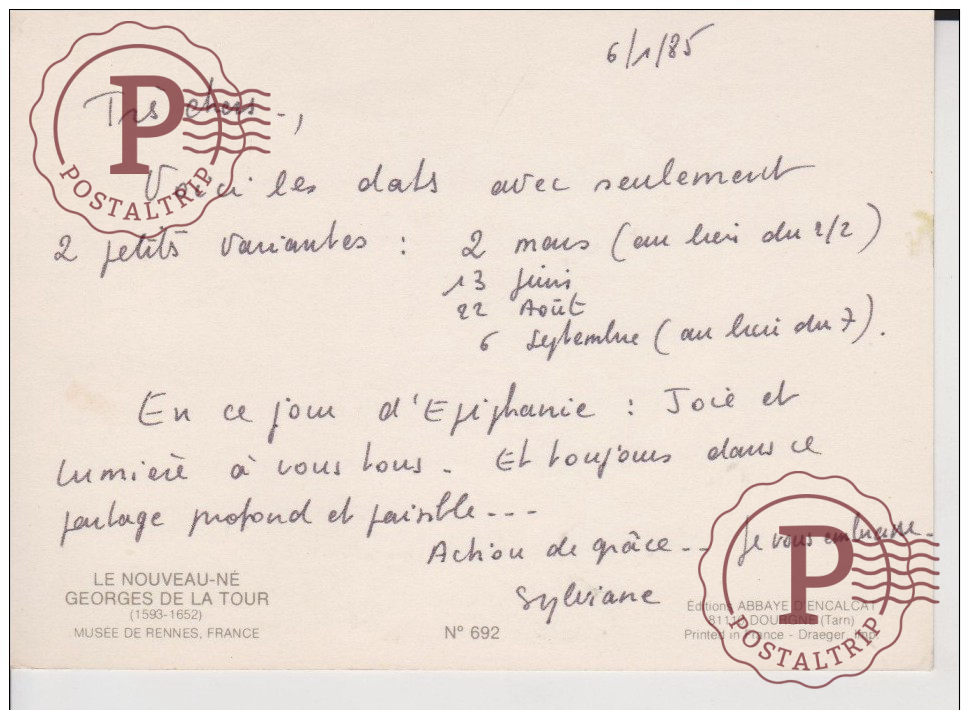 6/1/85
Très chers.,
Voici les dats avec seulement
2 petits variantes : 2 mars (au lieu du 2/2)
13 juin
22 Août
6 Septembre (au lieu du 7).
En ce jour d'Epiphanie : Joie et
lumière à vous tous. Et toujours dans ce
partage profond et paisible---
Action de grâce-- Je vous embrasse.
Sylviane
LE NOUVEAU-NÉ
GEORGES DE LA TOUR
(1593-1652)
MUSÉE DE RENNES, FRANCE
N° 692
Éditions ABBAYE D'ENCALCAT
81110 DOURGNE (Tarn)
Printed in France - Draeger, Imp.
P
POSTALTRIP
P
POSTALTRIP